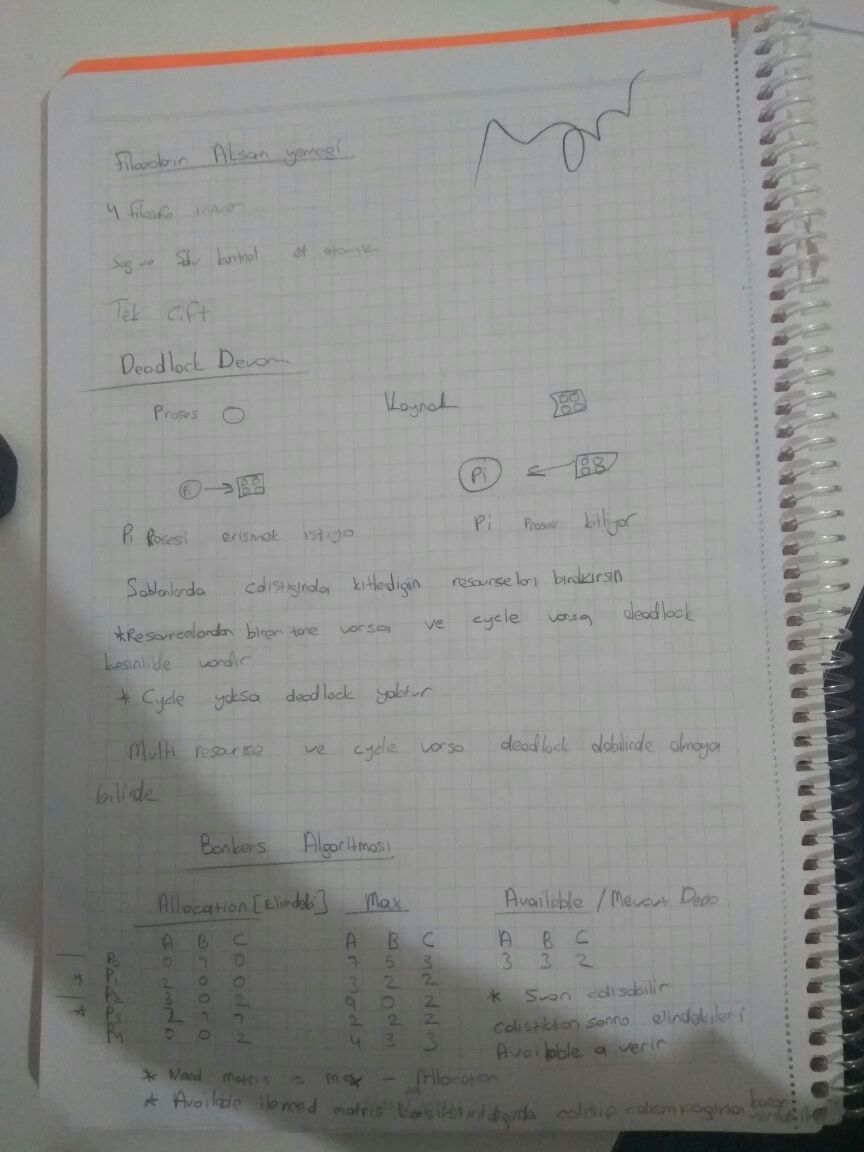 Filozofların Aksam yemegi
4 filozof
Sag ve Solu kontrol et atomik
Tek Cift
Deadlock Devam
Proses Kaynak
Pi Pi
Pi Prosesi erismek istiyo Pi Proses kitliyor
Sablonlarda calistiginda kitledigin resourseları bırakırsın
*Resourcelardan birer tane varsa ve cycle varsa deadlock
kesinlikle vardır
* Cycle yoksa deadlock yoktur
Multi resourse ve cycle varsa deadlock olabilirde olmaya
bilirde
Bankers Algoritması
Allocation [Elimdeki] Max Available / Mevcut Depo
A B C A B C A B C
P0 0 1 0 7 5 3 3 3 2
* P1 2 0 0 3 2 2
P2 3 0 2 9 0 2 * Suan calısabilir
* P3 2 1 1 2 2 2 calıstıktan sonra elindekileri
P4 0 0 2 4 3 3 Available a verir
* Need matris = max - Allocation
* Available ile need matris karsilastirildiginda calisip calismayacagina karar